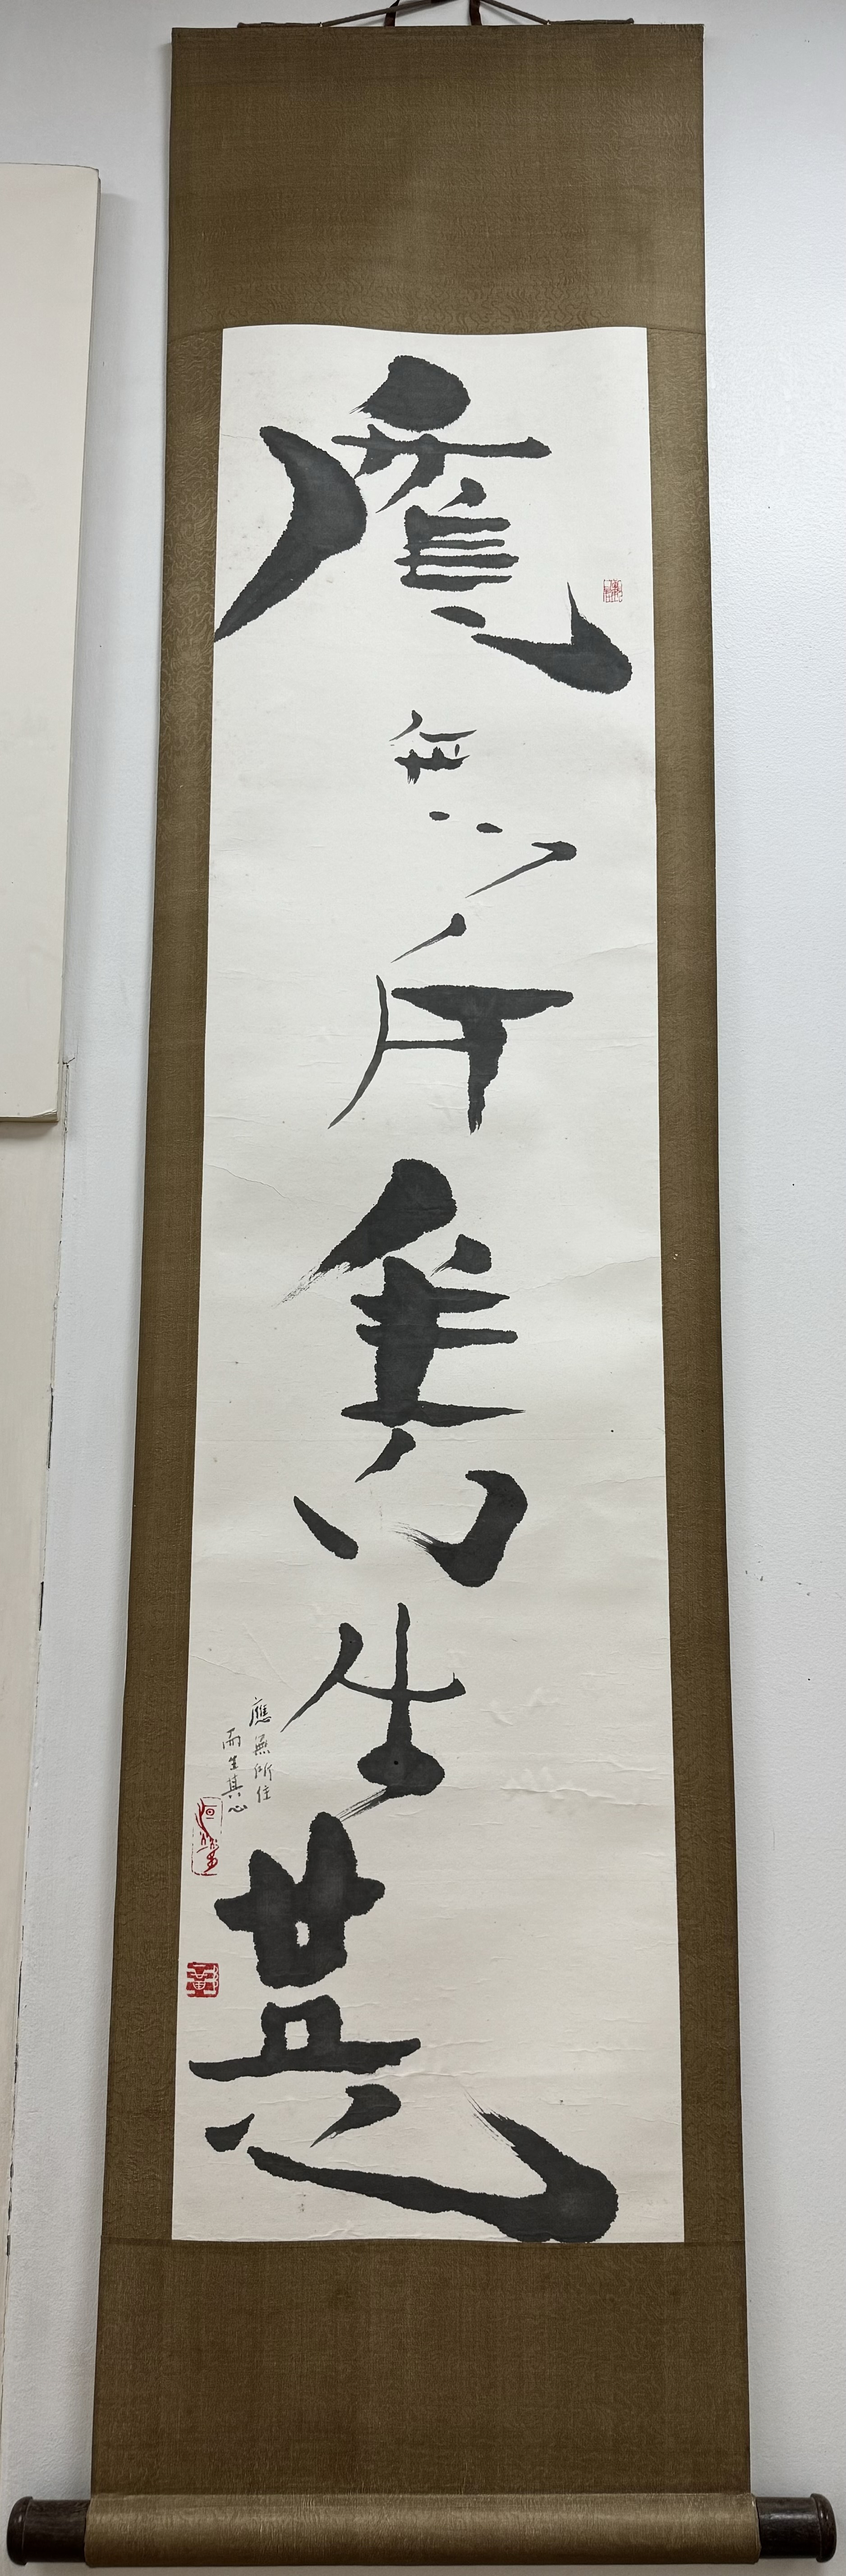 應無所住而生其心
應無所住
而生其心